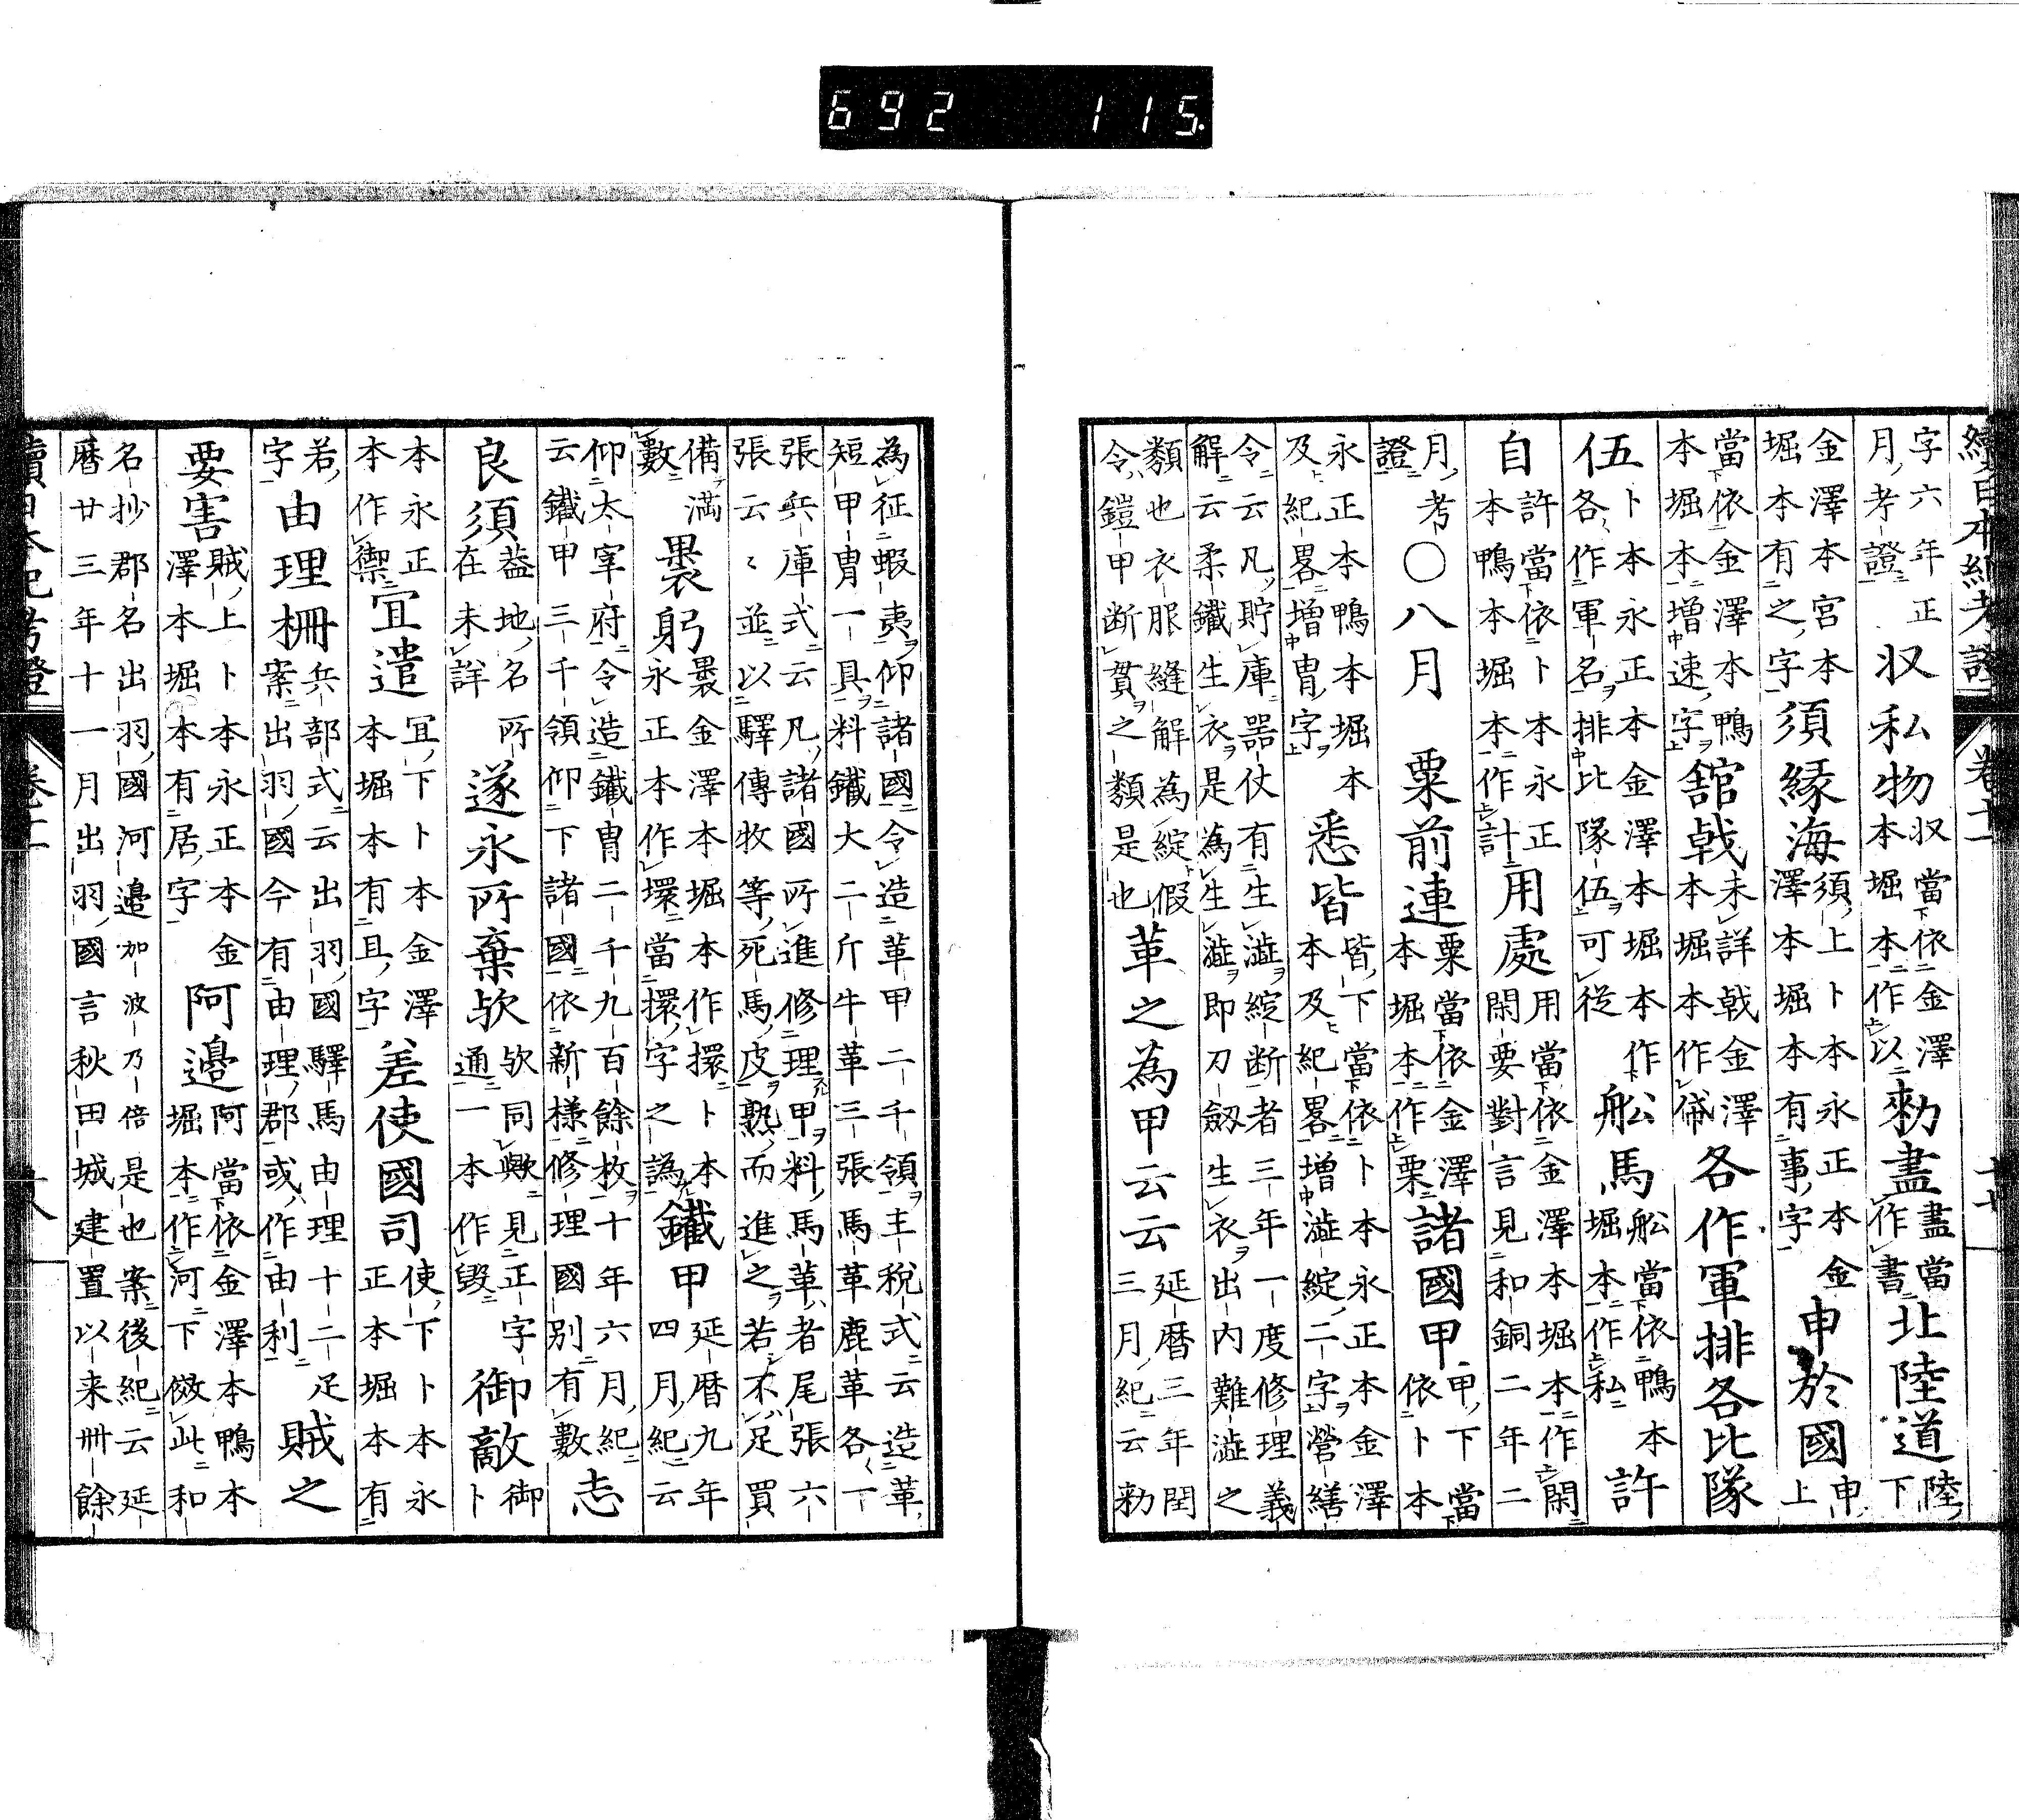 692 115.
續日本紀考證 卷十一
字六年正
月考證 収私物 収當依金澤
本堀本作以 勅盡 盡當
作書 北陸道 陸下
金澤本宮本
堀本有之字 須緣海 須上卜本永正本金
澤本堀本有事字 申於國 申上
當依金澤本鴨
本堀本增速字 舘戟 未詳戟金澤
本堀本作㡀 各作軍排各比隊
伍 卜本永正本金澤本堀本作
各作軍名排比隊伍可從 船馬 船當依鴨本
堀本作私 許
自 許當依卜本永正
本鴨本堀本作計 用處 用當依金澤本堀本作閑
閑要對言見和銅二年二
月考
證 ○八月 粟前連 粟當依金澤
本堀本作栗 諸國甲 甲下當
依卜本
永正本鴨本堀本
及紀畧增冑字 悉皆 皆下當依卜本永正本金澤
本及紀畧增澁綻二字營繕
令云凡貯庫器仗有生澁綻断者三年一度修理義
解云柔鐵生衣是為生澁即刀劔生衣出内難澁之
類也衣服縫解為綻假
令鎧甲断貫之類是也 革之為甲云云 延曆三年閏
三月紀云勅
為征蝦夷仰諸國令造革甲二千領主稅式云造革
短甲冑一具料鐵大二斤牛革三張馬革鹿革各一
張兵庫式云凡諸國所進修理甲料馬革者尾張六
張云々並以驛傳牧等死馬皮熟而進之若不足買
備滿
數 褁躬 褁金澤本堀本作擐卜本
永正本作環當擐字之譌 鐵甲 延曆九年
四月紀云
仰太宰府令造鐵冑二千九百餘枚十年六月紀
云鐵甲三千領仰下諸國依新樣修理國別有數 志
良須 蓋地名所
在未詳 遂永所棄欤 欤同歟見正字
通一本作毀 御敵 御卜
本永正
本作禦 宜遣 宜下卜本金澤
本堀本有且字 差使國司 使下卜本永
正本堀本有
若
字 由理柵 兵部式云出羽國驛馬由理十二疋
案出羽國今有由理郡或作由利 賊之
要害 賊上卜本永正本金
澤本堀本有居字 阿邊 阿當依金澤本鴨本
堀本作河下倣此和
名抄郡名出羽國河邊加波乃倍是也案後紀云延
曆廿三年十一月出羽國言秋田城建置以来卌餘
續日本紀考證 卷十一